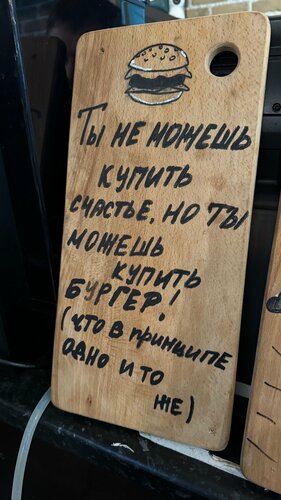 Ты не можешь
купить
счастье, но ты
можешь
купить
бургер!
(что в принципе
одно и то
же)